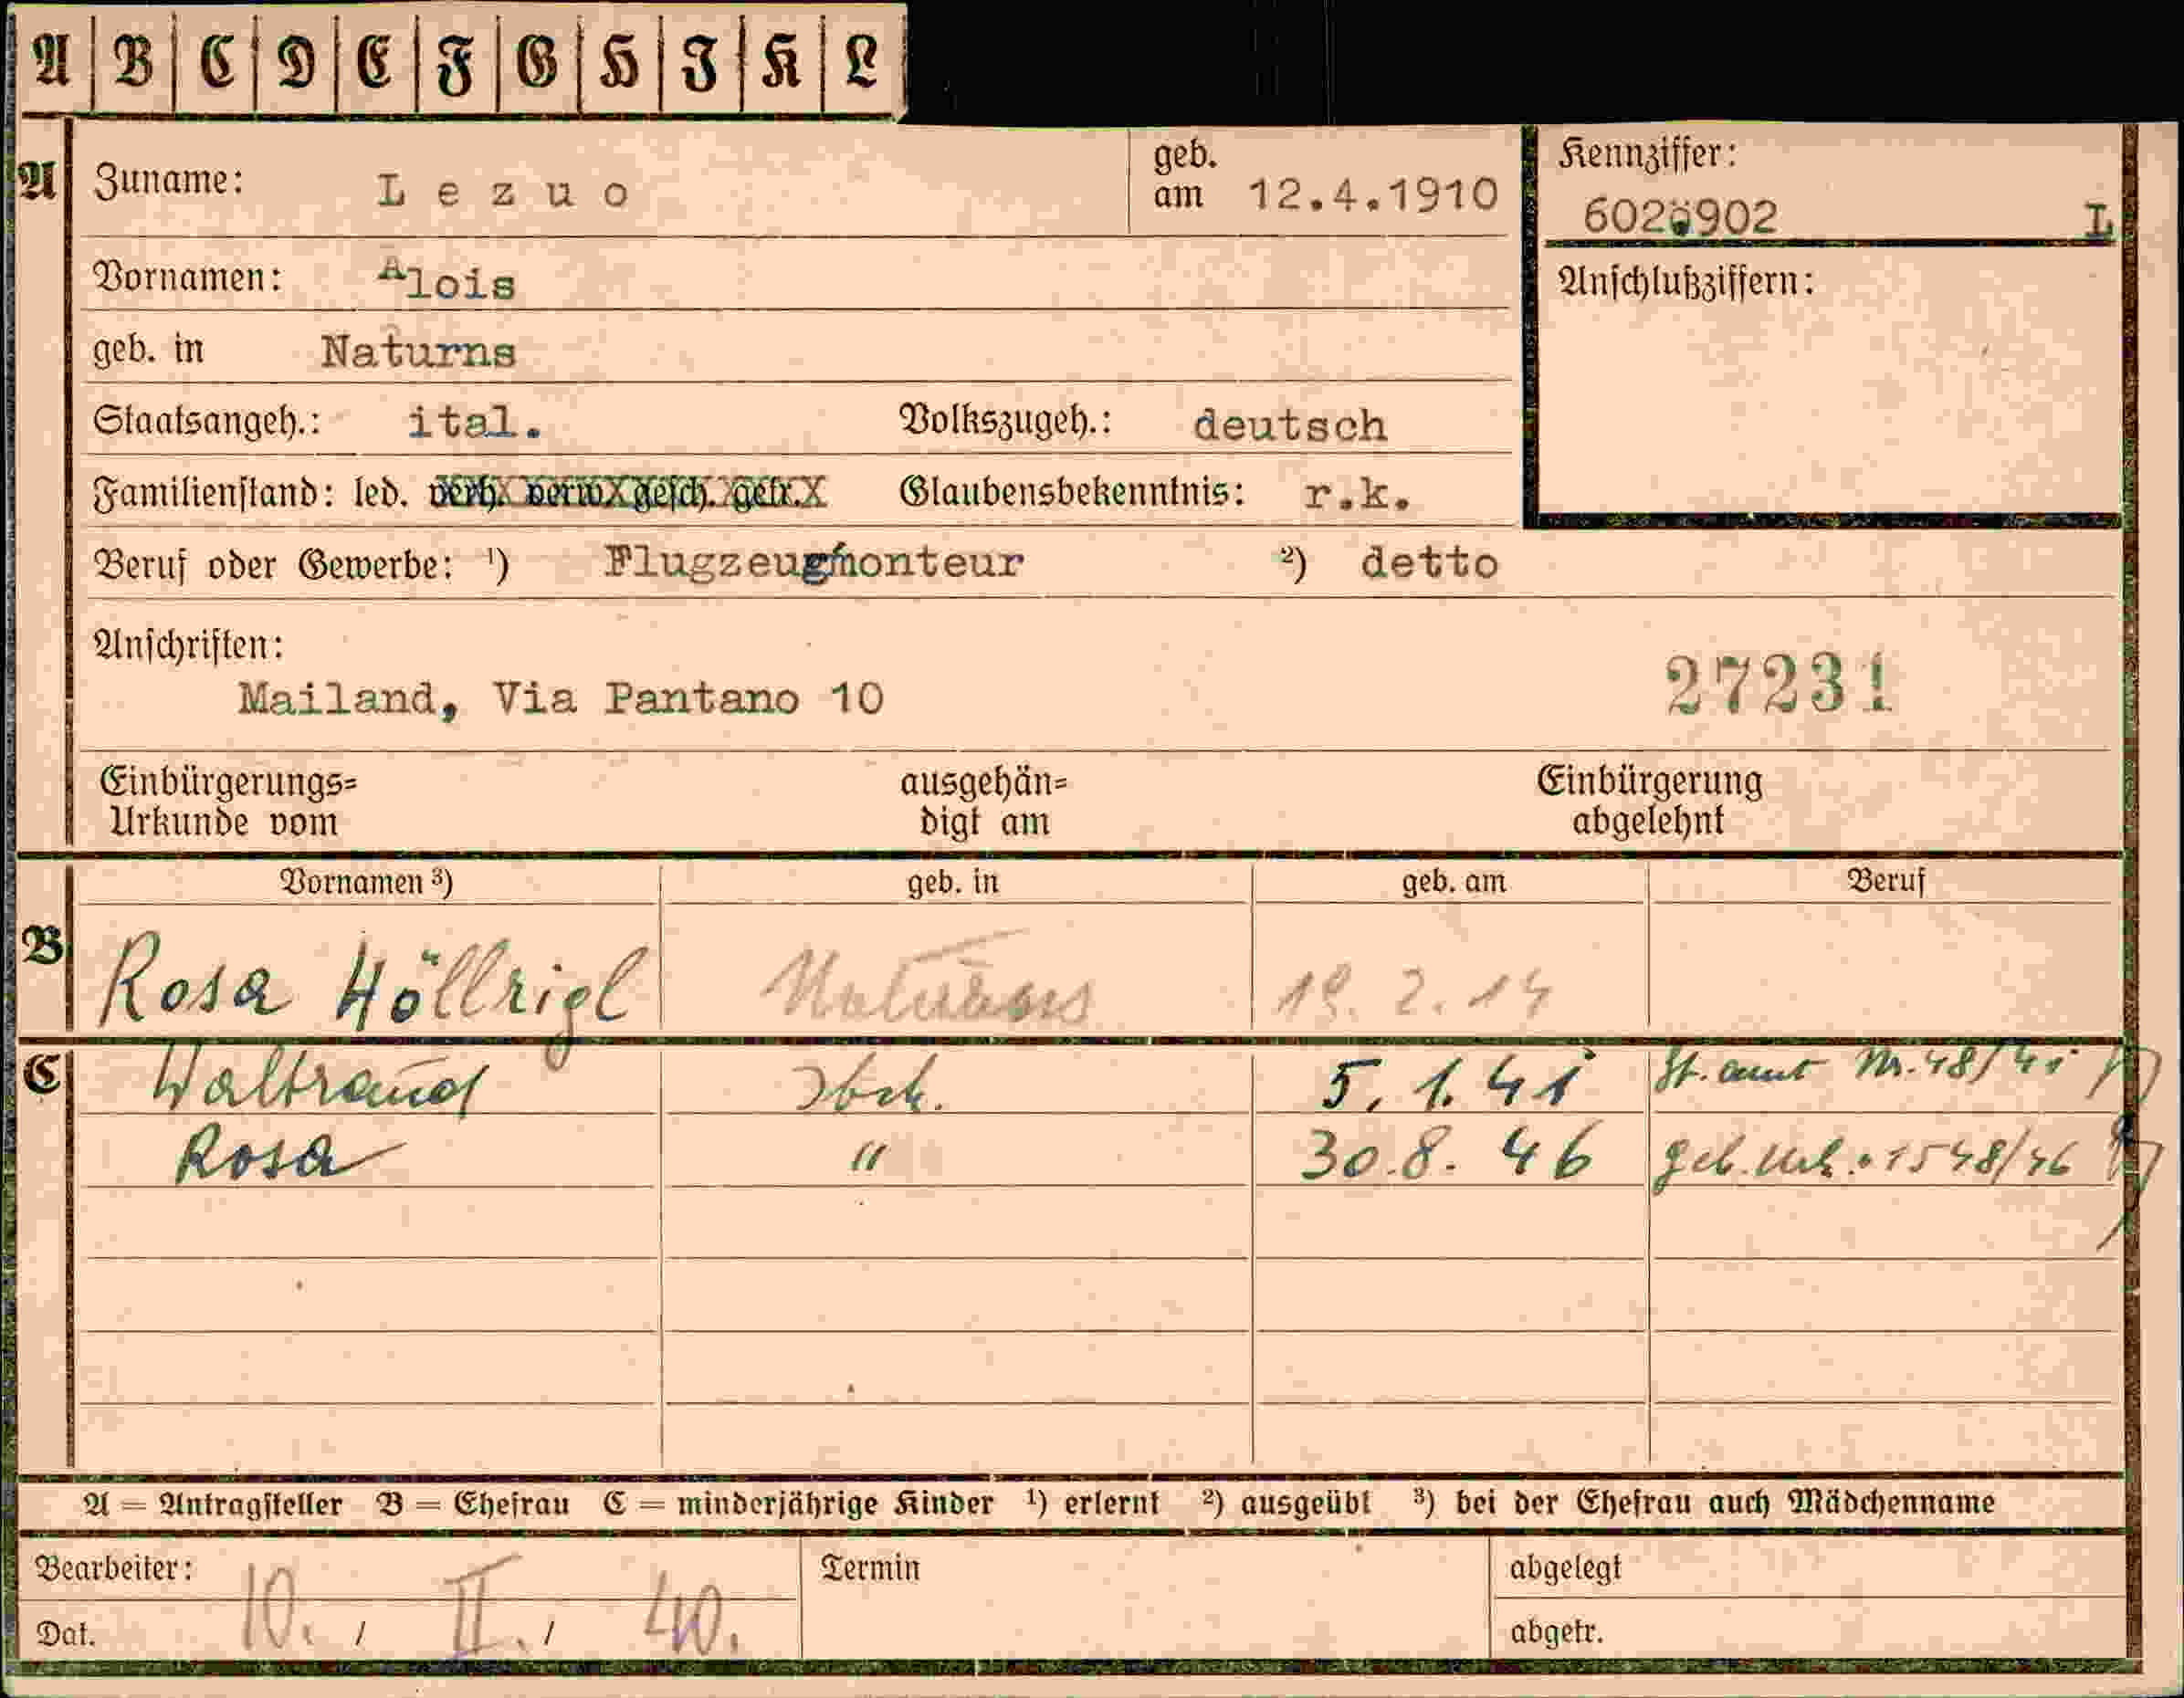 A B C D E F G H I K L
A Zuname: Lezuo geb. am 12.4.1910
Kennziffer: 602 902 L
Vornamen: Alois
Anschlußziffern:
geb. in Naturns
Staatsangeh.: ital. Volkszugeh.: deutsch
Familienstand: led. verh. verw. gesch. getr. Glaubensbekenntnis: r.k.
Beruf oder Gewerbe: ¹) Flugzeugmonteur ²) detto
Anschriften:
Mailand, Via Pantano 10 27231
Einbürgerungs= ausgehän= Einbürgerung
Urkunde vom digt am abgelehnt
Vornamen ³) geb. in geb. am Beruf
B Rosa Höllrigl Naturns 19. 2. 14
C Waltraud Ibck. 5. 1. 41 St. amt Nr. 48/41
Rosa " 30. 8. 46 geb. Urk. 1548/46
A = Antragsteller B = Ehefrau C = minderjährige Kinder ¹) erlernt ²) ausgeübt ³) bei der Ehefrau auch Mädchenname
Bearbeiter: Termin abgelegt
Dat. 10. / II. / 40. abgetr.